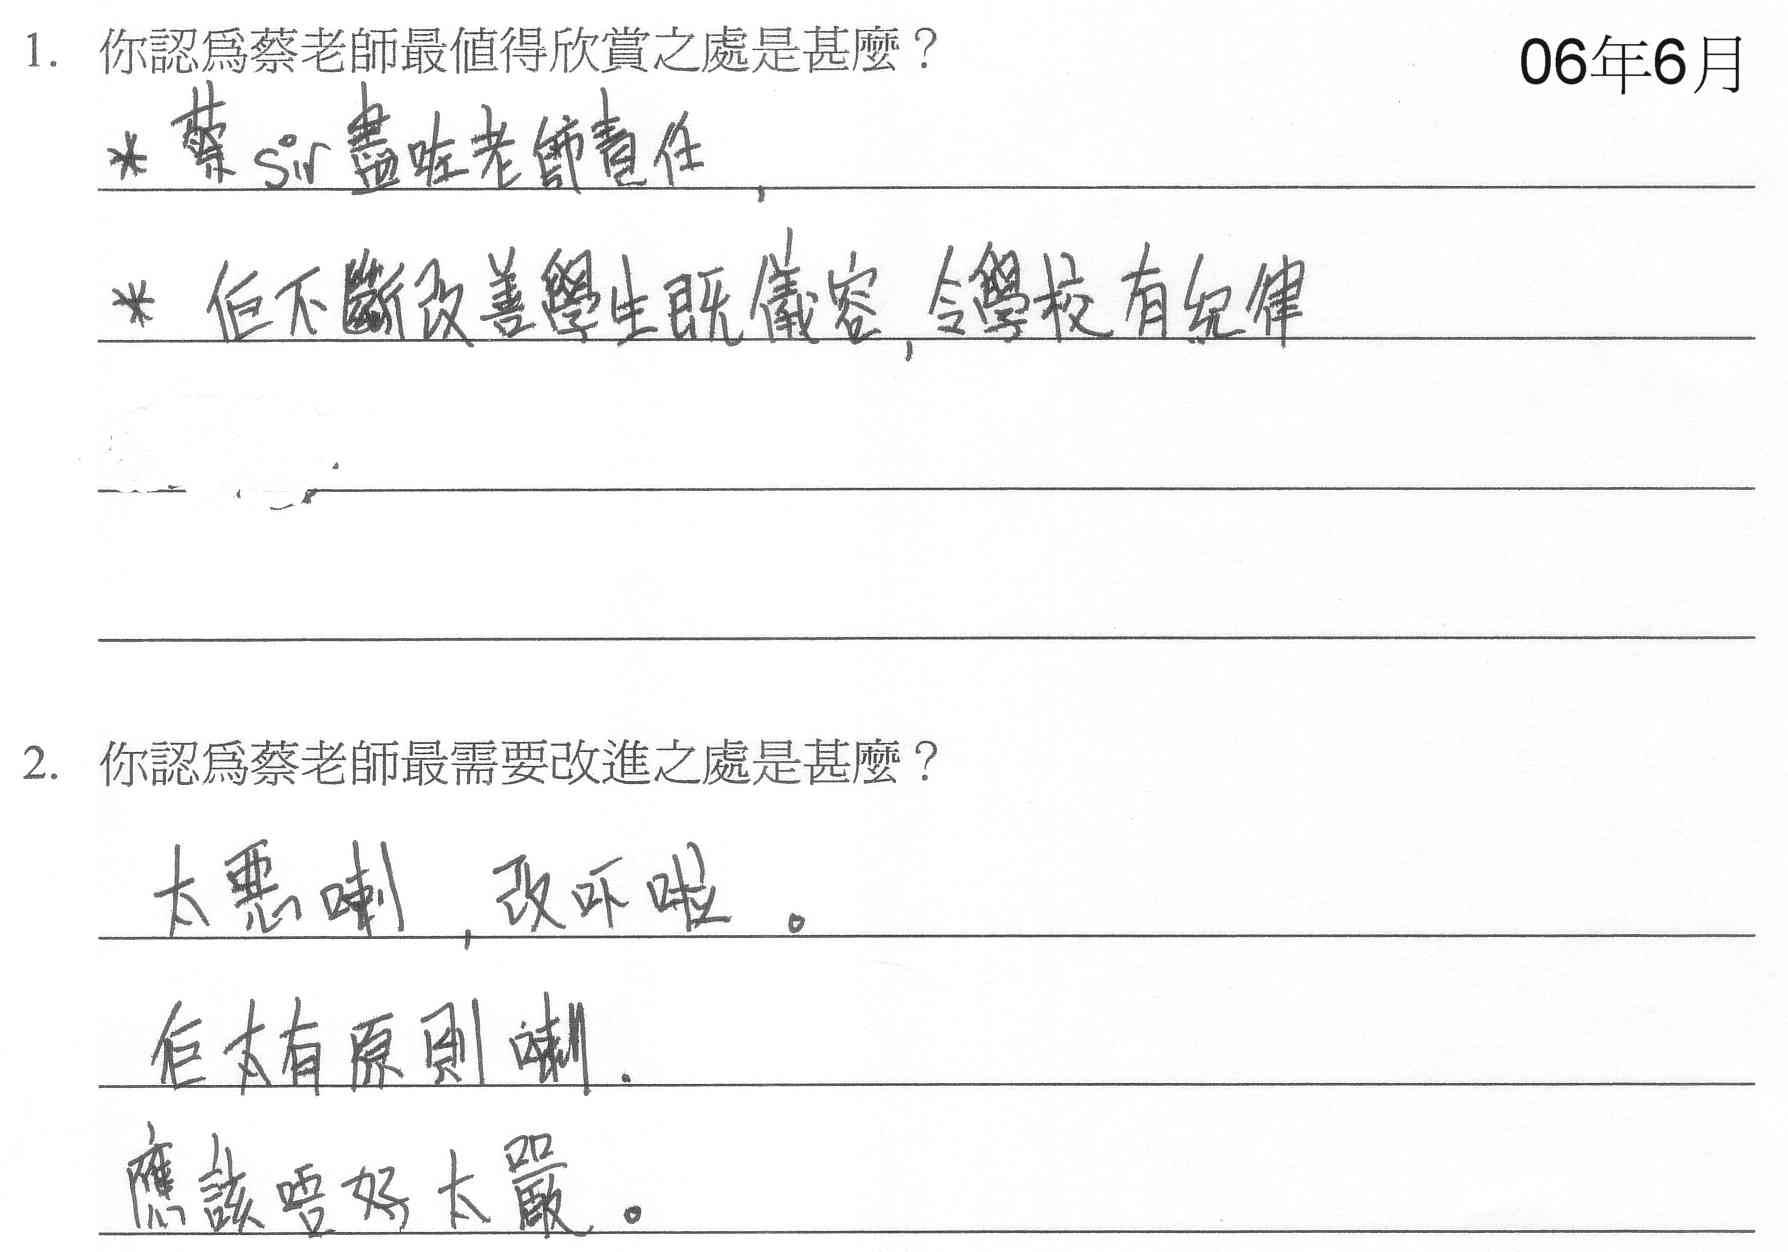 1. 你認爲蔡老師最值得欣賞之處是甚麼？
06年6月
* 蔡 sir 盡咗老師責任,
* 佢不斷改善學生既儀容,令學校有紀律
2. 你認爲蔡老師最需要改進之處是甚麼？
太悪喇,改吓啦。
佢太有原則喇.
應該唔好太嚴。